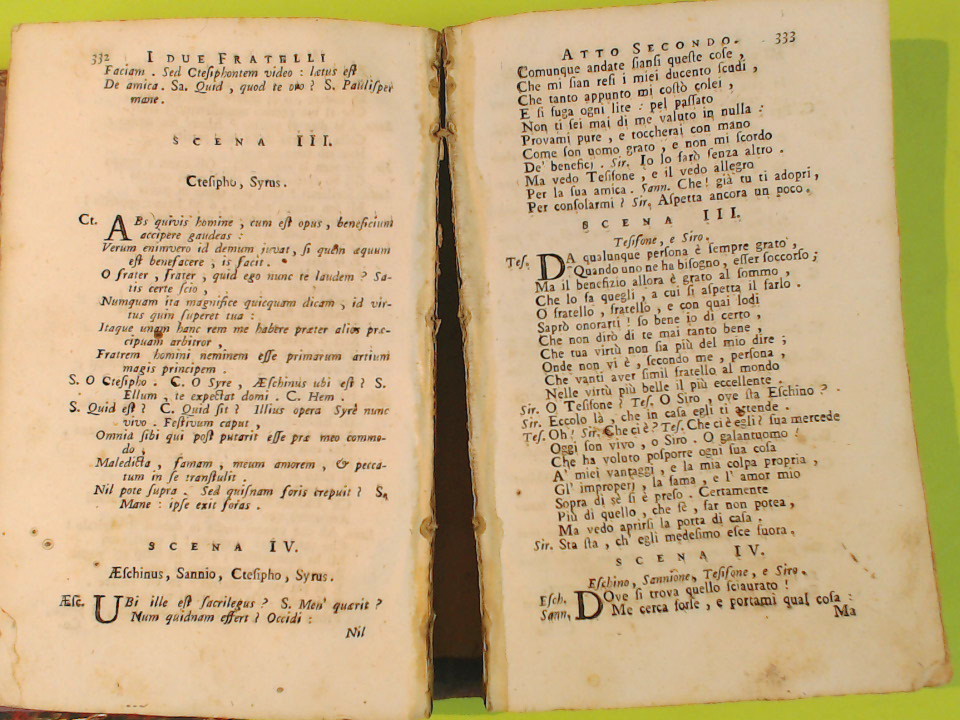 332 I DUE FRATELLI
Faciam . Sed Ctesiphontem video : lætus est
De amica. Sa. Quid , quod te oro ? S. Paulisper
mane.
SCENA III.
Ctesipho, Syrus.
Ct. ABs quivis homine , cum est opus , beneficium
accipere gaudeas :
Verum enimvero id demum juvat, si quem æquum
est benefacere , is facit .
O frater , frater , quid ego nunc te laudem ? Sa-
tis certe scio ,
Numquam ita magnifice quicquam dicam , id vir-
tus quin superet tua :
Itaque unam hanc rem me habere præter alios præ-
cipuam arbitror ,
Fratrem homini neminem esse primarum artium
magis principem .
S. O Ctesipho . C. O Syre , Æschinus ubi est ? S.
Ellum , te expectat domi . C. Hem .
S. Quid est ? C. Quid sit ? Illius opera Syre nunc
vivo . Festivum caput ,
Omnia sibi qui post putarit esse præ meo commo-
do ,
Maledicta , famam , meum amorem , & pecca-
tum in se transtulit .
Nil pote supra . Sed quisnam foris crepuit ? S.
Mane : ipse exit foras .
SCENA IV.
Æschinus, Sannio, Ctesipho, Syrus.
Æsc. UBi ille est sacrilegus ? S. Men' quærit ?
Num quidnam effert ? Occidi :
Nil
ATTO SECONDO. 333
Comunque andate siansi queste cose ,
Che mi sian resi i miei ducento scudi ,
Che tanto appunto mi costò colei ,
E si fuga ogni lite : pel passato
Non ti sei mai di me valuto in nulla :
Provami pure , e toccherai con mano
Come son uomo grato , e non mi scordo
De' beneficj . Sir. Io lo farò senza altro .
Ma vedo Tesifone , e il vedo allegro
Per la sua amica . Sann. Che ! già tu ti adopri,
Per consolarmi ? Sir. Aspetta ancora un poco.
SCENA III.
Tesifone, e Siro.
Tes. DA qualunque persona è sempre grato ,
Quando uno ne ha bisogno, esser soccorso ;
Ma il benefizio allora è grato al sommo ,
Che lo fa quegli , a cui si aspetta il farlo .
O fratello , fratello , e con quai lodi
Saprò onorarti ! so bene io di certo ,
Che non dirò di te mai tanto bene ,
Che tua virtù non sia più del mio dire ;
Onde non vi è , secondo me , persona ,
Che vanti aver simil fratello al mondo
Nelle virtù più belle il più eccellente .
Sir. O Tesifone ? Tes. O Siro , ove sta Eschino ?
Sir. Eccolo là , che in casa egli ti attende .
Tes. Oh! Sir. Che ci è? Tes. Che ci è egli? sua mercede
Oggi son vivo , o Siro . O galantuomo !
Che ha voluto posporre ogni sua cosa
A' miei vantaggi , e la mia colpa propria ,
Gl' improperj , la fama , e l' amor mio
Sopra di sè si è preso . Certamente
Più di quello , che fè , far non potea ,
Ma vedo aprirsi la porta di casa .
Sir. Sta sta, ch' egli medesimo esce fuora.
SCENA IV.
Eschino, Sannione, Tesifone, e Siro.
Esch. DOve si trova quello sciaurato !
Sann. Me cerca forse , e portami qual cosa :
Ma